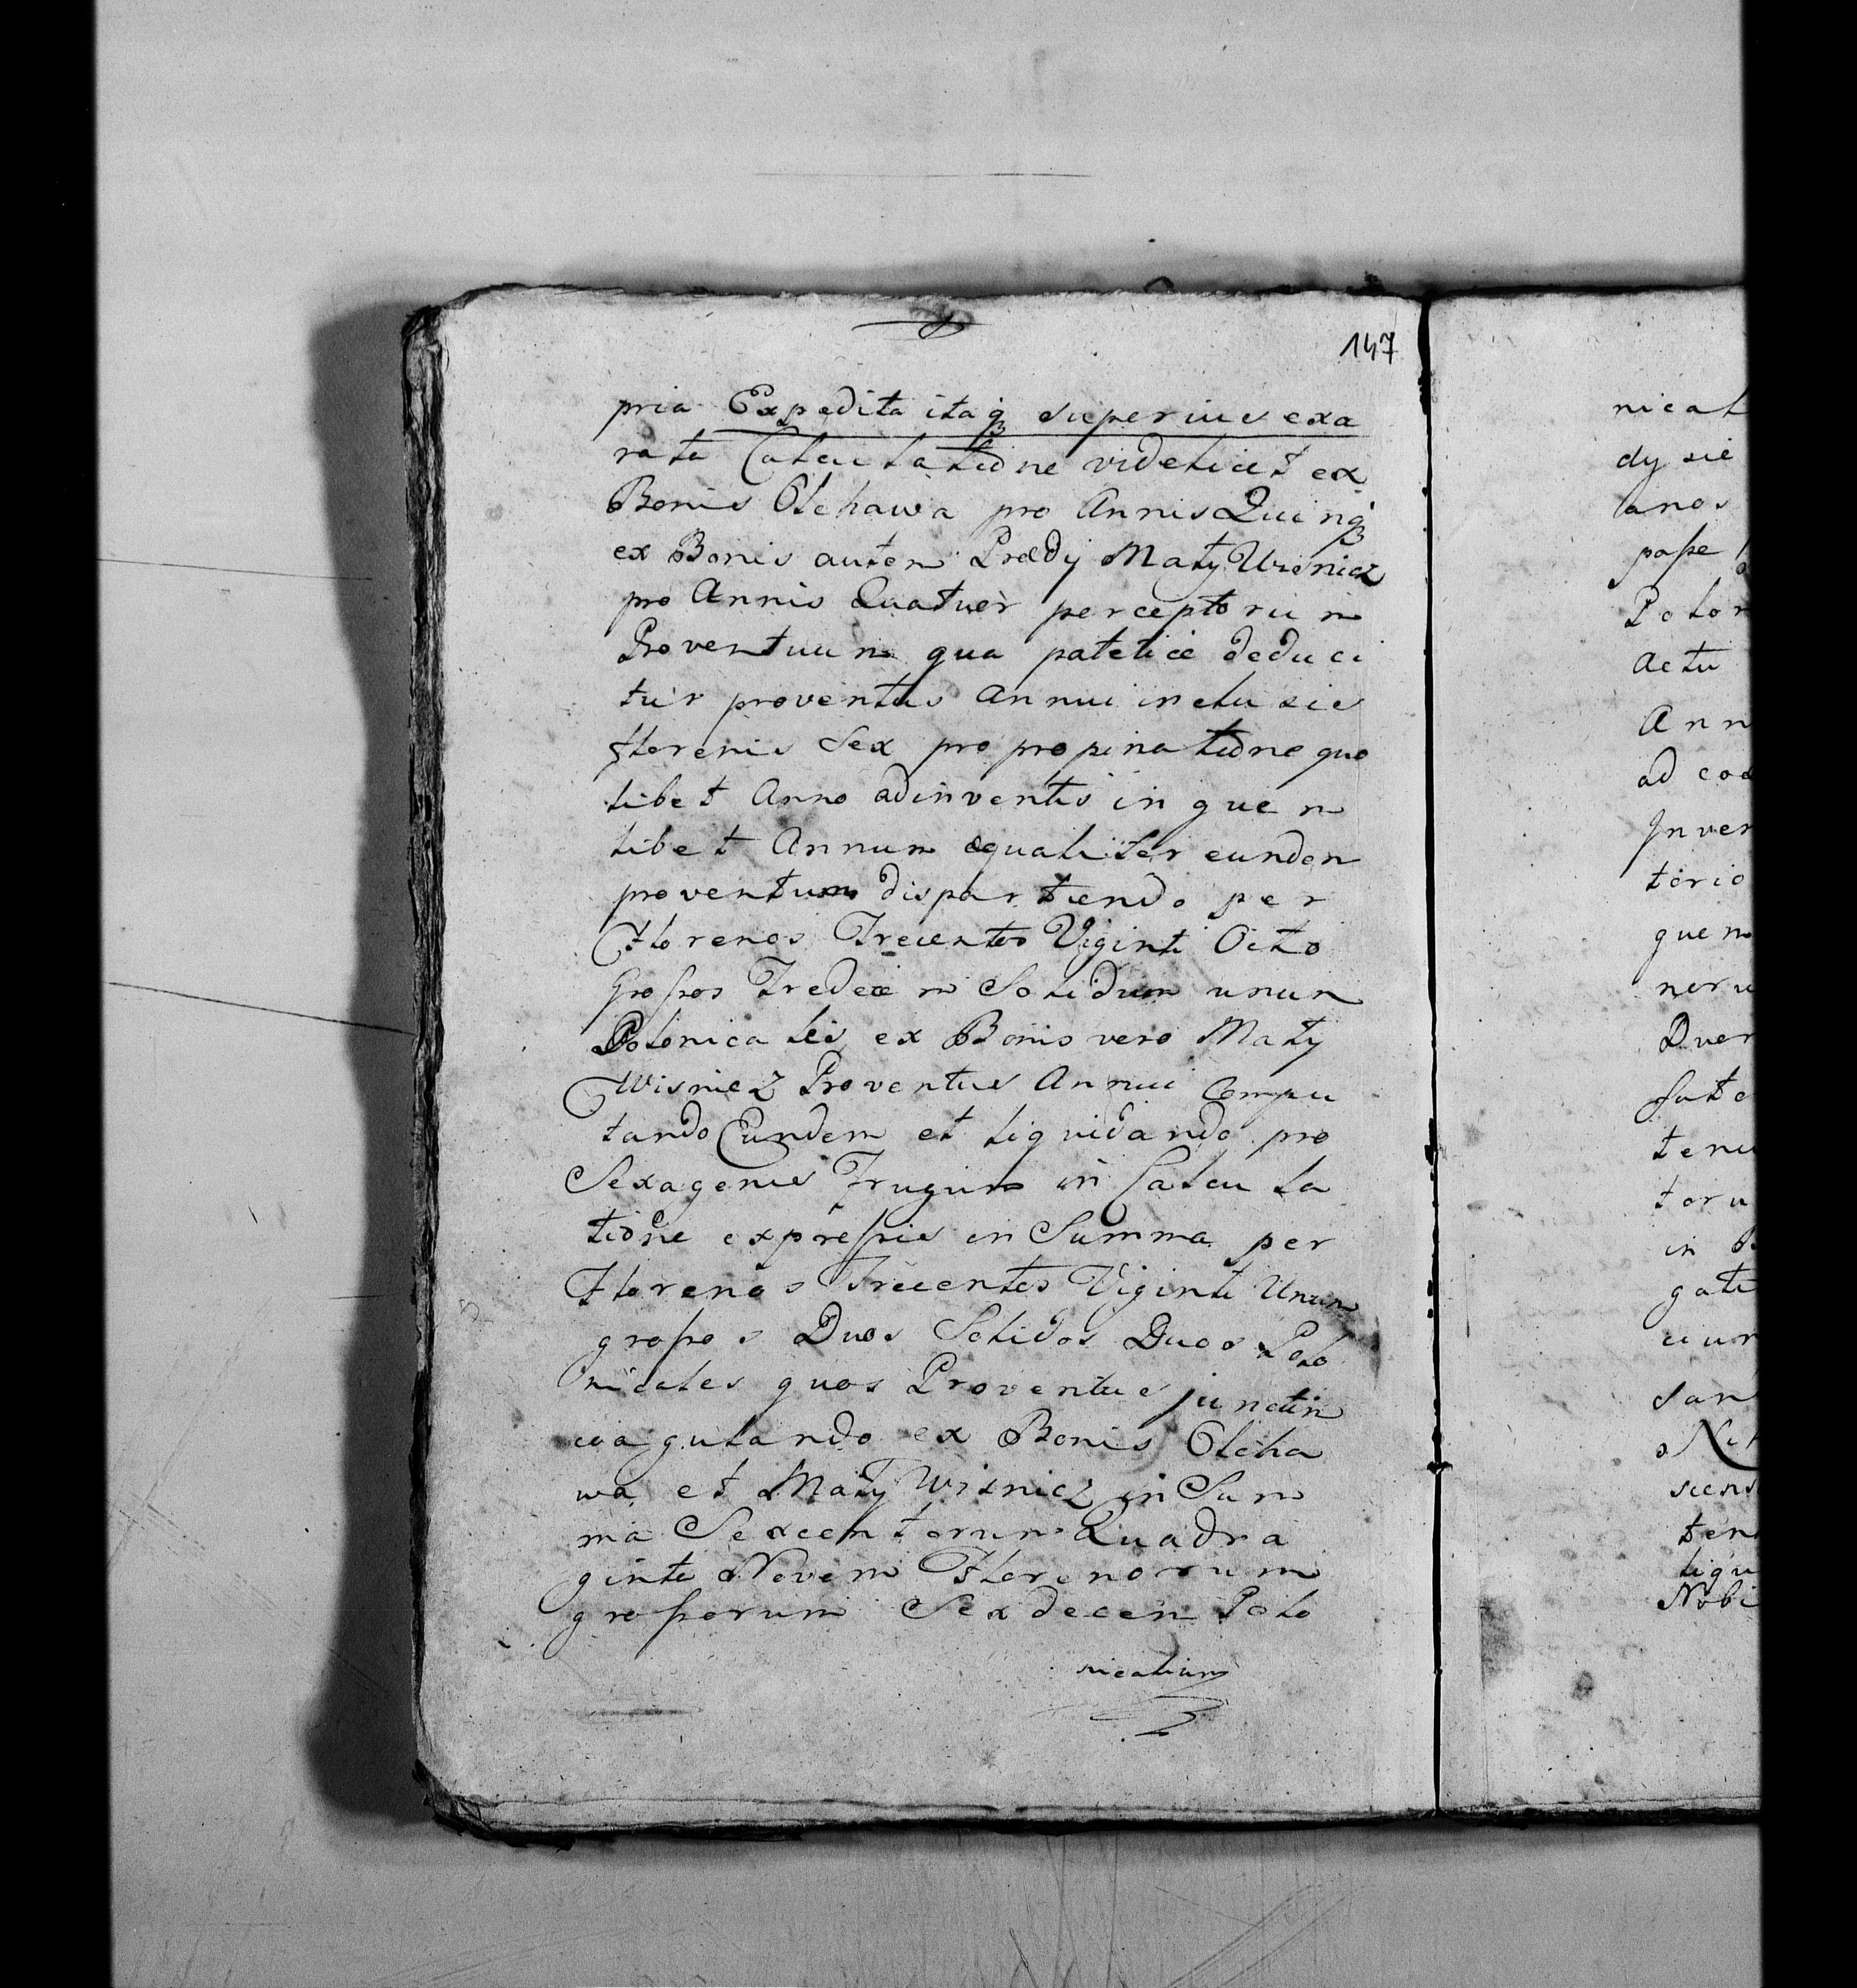 147
pria Expedita itaq₃ superius exa
rata Calculatione videlicet ex
Bonis Olchawa pro Annis Quinq₃
ex Bonis autem Prædij Mały Wisnicz
pro Annis Quatuor perceptorum
Proventuum qua patelicè deduci
tur proventus Annui inclusis
florenis Sex pro propinatione quo
libet Anno adinventis in quem
libet Annum æqualiter eundem
proventum dispartiendo per
Florenos Trecentos Viginti Octo
Grossos Tredecim Solidum unum
Polonicales, ex Bonis vero Mały
Wisnicz Proventus Annui Compu
tando Eundem et liquidando pro
Sexagenis Frugum in Calcula
tione expressis in Summa per
Florenos Trecentos Viginti Unum
grossos Duos Solidos Duos Polo
nicales quos Proventus junctim
coagulando ex Bonis Olcha
wa et Mały Wisnicz in Sum
ma Sexcentorum Quadra
ginta Novem Florenorum
grossorum Sexdecem Polo
nicalium
nical
dy sie
anos
posse
Polon
Actu
Ann
ad coa
Inven
torio
quem
noru
Duer
fate
tenu
toru
in B
gati
ciur
san
Ni
scens
ten
liqu
Nobi